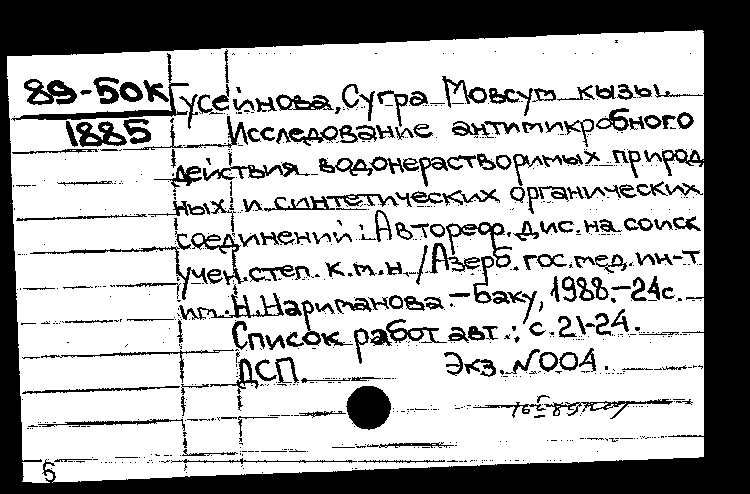 89-50К Гусейнова, Сугра Мовсум кызы.
1885 Исследование антимикробного
действия водонерастворимых природ
ных и синтетических органических
соединений : Автореф. дис. на соиск
учен. степ. к.м.н. / Азерб. гос. мед. ин-т
им. Н. Нариманова. - Баку, 1988. - 24с.
Список работ авт.: с. 21-24.
ДСП. Экз. N004.
6